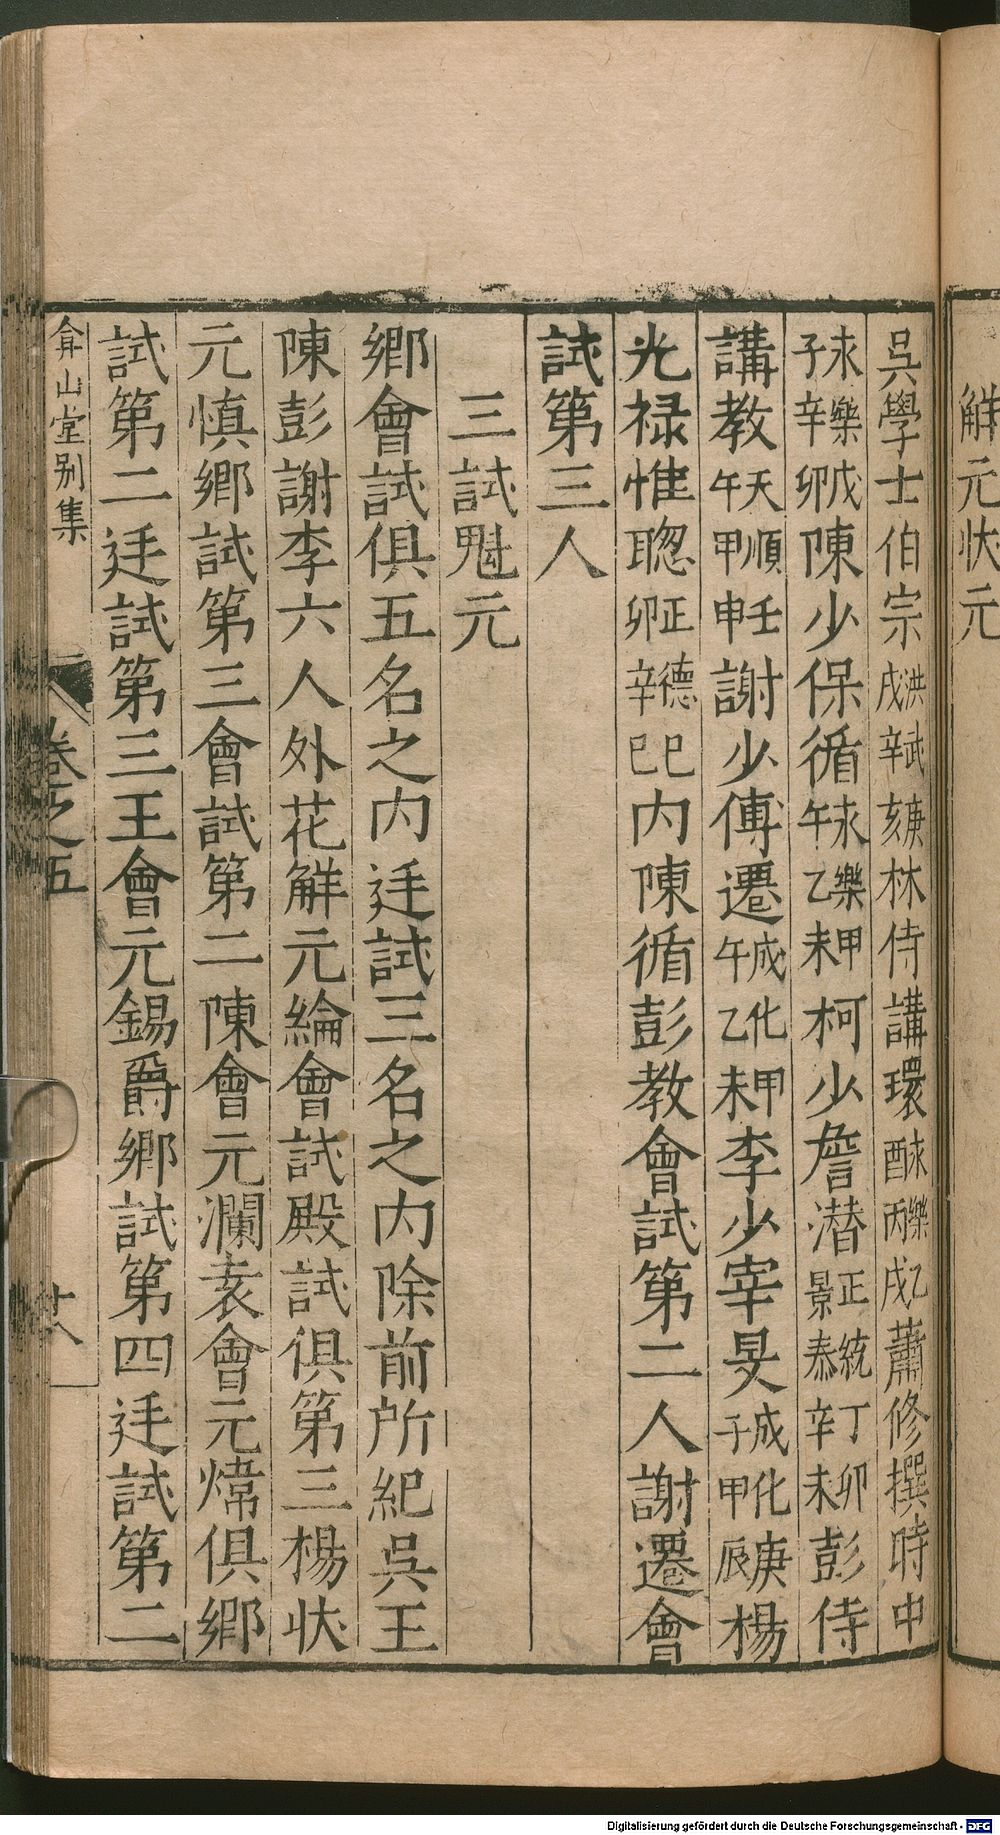 解元狀元
吳學士伯宗洪武庚戌辛亥林侍講環永樂乙酉丙戌蕭修撰時中
永樂戊子辛卯陳少保循永樂甲午乙未柯少詹潜正統丁卯景泰辛未彭侍
講教天順壬午甲申謝少傅遷成化甲午乙未李少宰旻成化庚子甲辰楊
光禄惟聦正德己卯辛巳内陳循彭教會試第二人謝遷會
試第三人
三試魁元
鄉會試俱五名之内廷試三名之内除前所紀吳王
陳彭謝李六人外花解元綸會試殿試俱第三楊状
元慎鄉試第三會試第二陳會元瀾袁會元煒俱鄉
試第二廷試第三王會元錫爵鄉試第四廷試第二
弇山堂别集
卷之五
廿八
Digitalisierung gefördert durch die Deutsche Forschungsgemeinschaft - DFG